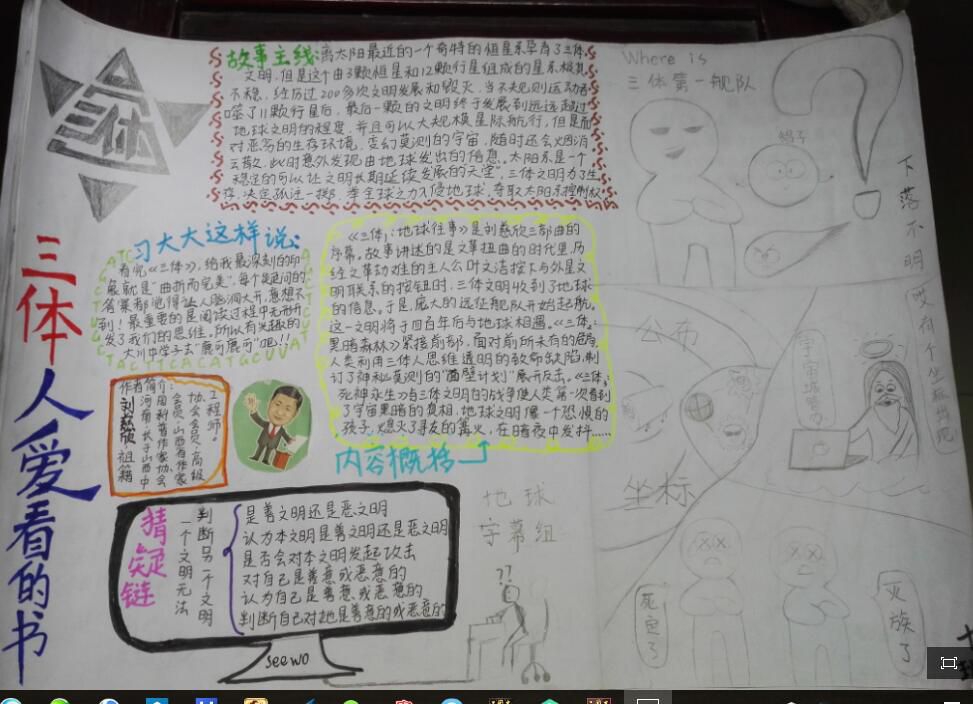 三体
三体
人爱看的书
故事主线:离太阳最近的一个奇特的恒星系孕育了三体
文明,但是这个由3颗恒星和12颗行星组成的星系极其
不稳,经历过200多次文明发展和毁灭,当不规则运动吞
噬了11颗行星后,最后一颗的文明终于发展到远远超过
地球文明的程度,并且可以大规模星际航行,但是面
对恶劣的生存环境,变幻莫测的宇宙,随时还会烟消
云散,此时意外发现由地球发出的信息,太阳系是一个
稳定的可以让文明长期延续发展的“天堂”,三体文明为了生
存,决定孤注一掷,举全球之力入侵地球,夺取太阳系控制权
Where is
三体第一舰队
鸽子
下落不明
习大大这样说:
看完《三体》,给我最深刻的印
象就是“曲折而完美”,每个疑问的
答案都觉得让人脑洞大开,意想不
到!最重要的是阅读过程中无形开
发了我们的思维,所以有兴趣的
大川中学子去“鹿可鹿可”吧!!
作者简介:
刘慈欣 祖籍
河南,长于山西中
国科普作家协会
会员,山西省作家
协会会员,高级
工程师。
《三体:地球往事》是刘慈欣三部曲的
序幕。故事讲述的是文革扭曲的时代里,历
经文革劫难的主人公叶文洁按下与外星文
明联系的按钮时,三体文明收到了地球
的信息。于是,庞大的远征舰队开始起航。
这一文明将于四百年后与地球相遇。《三体:
黑暗森林》紧接前部,面对前所未有的危局,
人类利用三体人思维透明的致命缺陷,制
订了神秘莫测的“面壁计划”展开反击。《三体:
死神永生》与三体文明的战争使人类第一次看到
了宇宙黑暗的真相,地球文明像一个恐惧的
孩子,熄灭了寻友的篝火,在暗夜中发抖……
内容概括
猜疑链
一个文明无法
判断另一个文明
是善文明还是恶文明
认为本文明是善文明还是恶文明
是否会对本文明发起攻击
对自己是善意或恶意的
认为自己是善意或恶意的
判断自己对她是善意的或恶意的
seewo
地球
字幕组
??
公布
坐标
哎有个坐标出现
死定了
灭族了